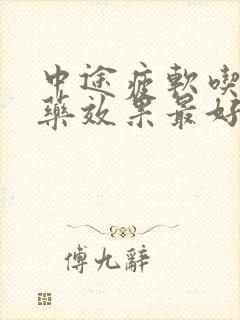 中途疲軟喫
藥效果最好
傅九辭